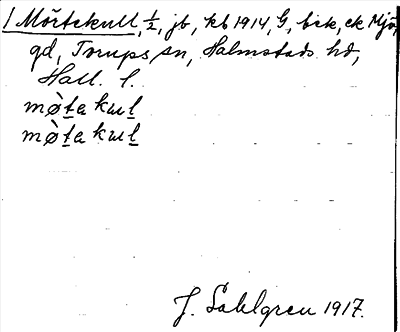 1 Mörtekull, ½, jb, kb 1914, G, bik, ek Mjö,
gd, Torups sn, Halmstads hd,
Hall. l.
mø̀ta kul
mø̀ta kul
J. Sahlgren 1917.